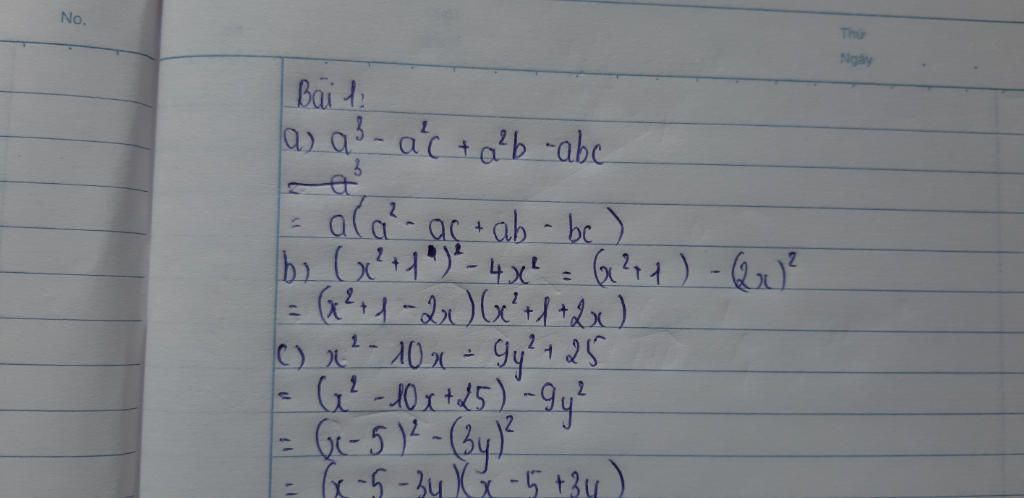 No.
Thứ
Ngày
Bài 1:
a) a³ - a²c + a²b - abc
= a³
= a(a² - ac + ab - bc)
b) (x² + 1)² - 4x² = (x² + 1) - (2x)²
= (x² + 1 - 2x)(x² + 1 + 2x)
c) x² - 10x - 9y² + 25
= (x² - 10x + 25) - 9y²
= (x - 5)² - (3y)²
= (x - 5 - 3y)(x - 5 + 3y)